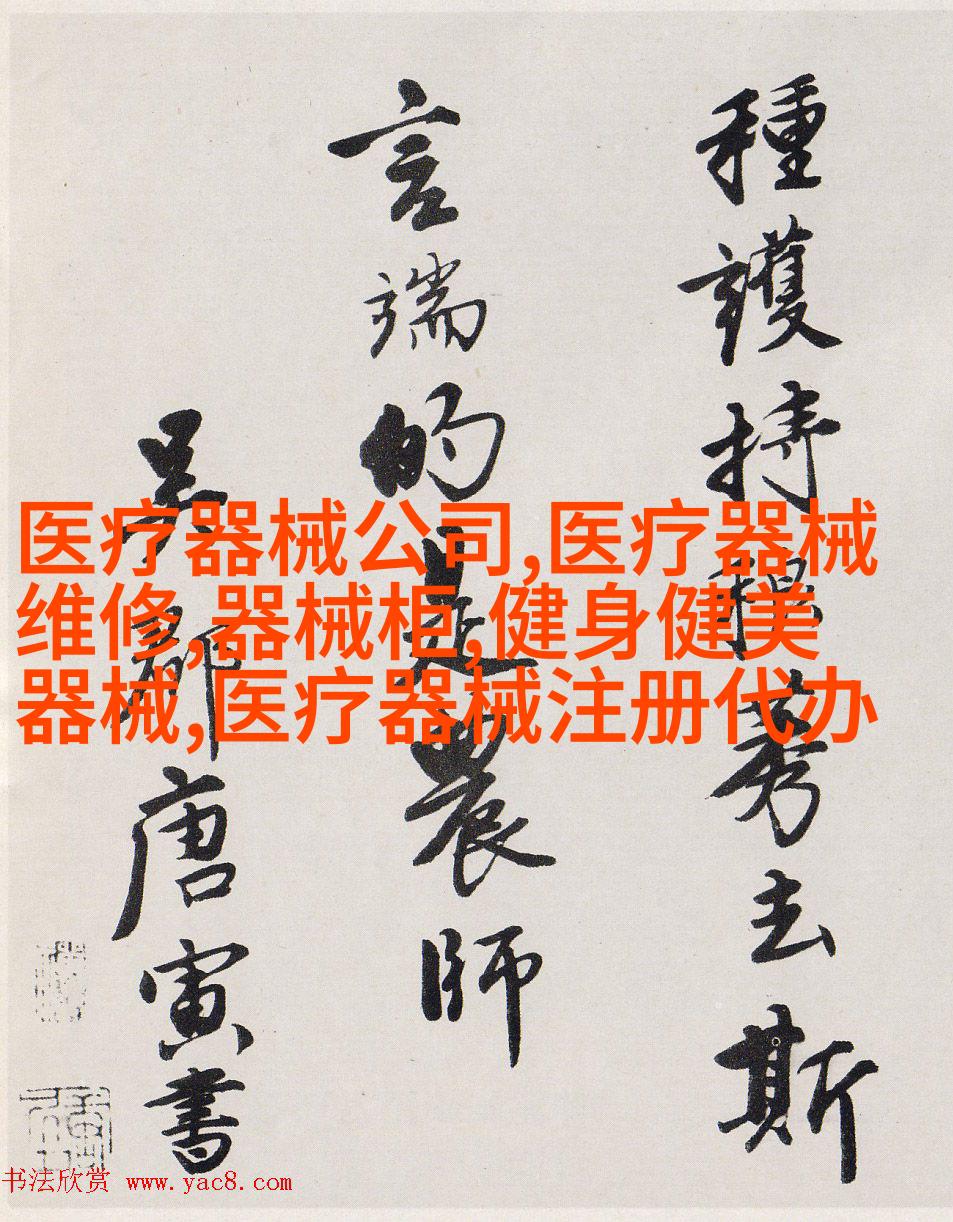 種護持稂莠去斯
言端的是農師
吳郡唐寅書
医疗器械公司,医疗器械
维修,器械柜,健身健美
器械,医疗器械注册代办
书法欣赏 www.yac8.com